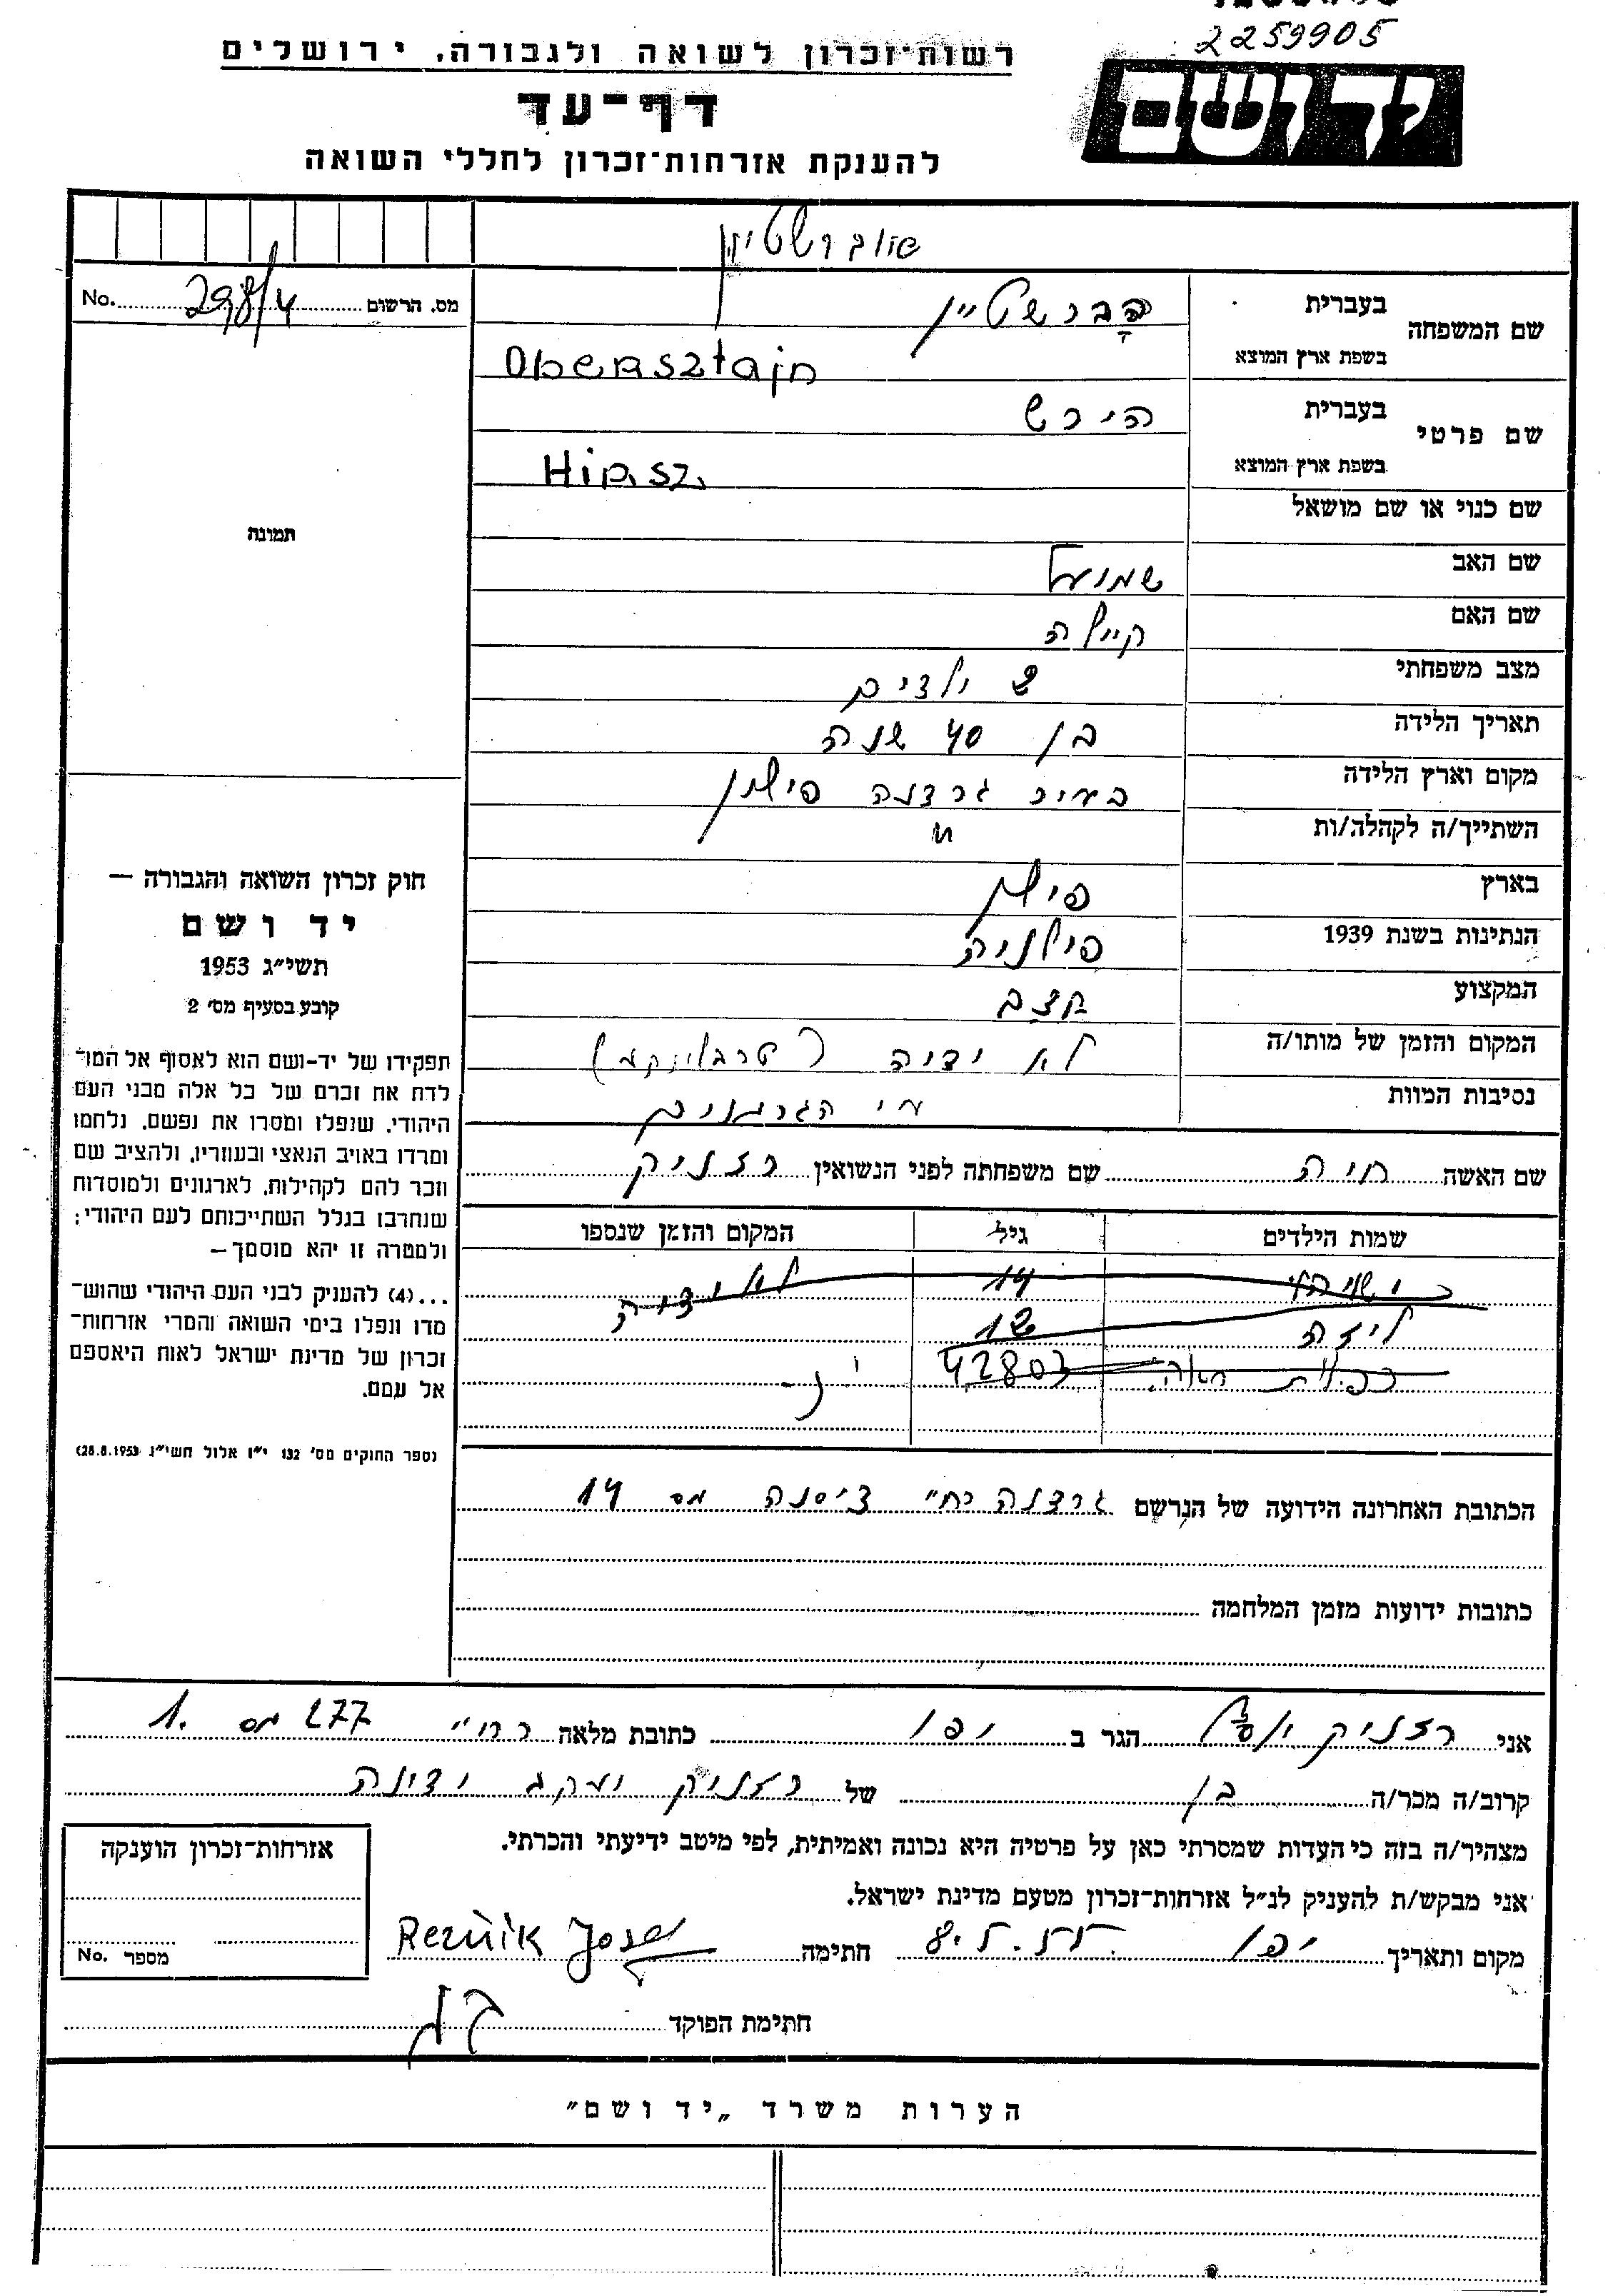 2259905
רשות־זכרון לשואה ולגבורה, ירושלים
יד ושם
דף־עד
להענקת אזרחות־זכרון לחללי השואה
מס. הרשום 298/4 No.
שם המשפחה בעברית
בשפת ארץ המוצא Obersztajn
שם פרטי בעברית הירש
בשפת ארץ המוצא Hirsz
שם כנוי או שם מושאל
תמונה
שם האב שמועל
שם האם קיילה
מצב משפחתי ילדים
תאריך הלידה בן 40 שנה
מקום וארץ הלידה בעיר גרדנה פולין
השתייך/ה לקהלה/ות "
בארץ פולין
הנתינות בשנת 1939 פולניה
המקצוע קצב
המקום והזמן של מותו/ה לא ידיה (טרבלינקה)
נסיבות המוות הגרמנים
שם האשה חיה שם משפחתה לפני הנשואין רזניק
שמות הילדים גיל המקום והזמן שנספו
14 לא ידיה
ליזה
42803
הכתובת האחרונה הידועה של הנרשם גרדנה רח" מס 14
כתובות ידועות מזמן המלחמה
חוק זכרון השואה והגבורה —
יד ושם
תשי״ג 1953
קובע בסעיף מס׳ 2
תפקידו של יד-ושם הוא לאסוף אל המו־
לדת את זכרם של כל אלה מבני העם
היהודי, שנפלו ומסרו את נפשם, נלחמו
ומרדו באויב הנאצי ובעוזריו, ולהציב שם
וזכר להם לקהילות, לארגונים ולמוסדות
שנחרבו בגלל השתייכותם לעם היהודי;
ולמטרה זו יהא מוסמך—
...(4) להעניק לבני העם היהודי שהוש־
מדו ונפלו בימי השואה והמרי אזרחות־
זכרון של מדינת ישראל לאות היאספם
אל עמם.
(ספר החוקים מס׳ 132 י״ז אלול תשי״ג 28.8.1953)
אני רזניק הגר ב יפו כתובת מלאה רח" 277 מס 1.
קרוב/ה מכר/ה בן של רזניק
מצהיר/ה בזה כי העדות שמסרתי כאן על פרטיה היא נכונה ואמיתית, לפי מיטב ידיעתי והכרתי.
אני מבקש/ת להעניק לנ״ל אזרחות־זכרון מטעם מדינת ישראל.
מקום ותאריך יפו חתימה Reznik Josef
חתימת הפוקד
אזרחות־זכרון הוענקה
מספר No.
הערות משרד „יד ושם"